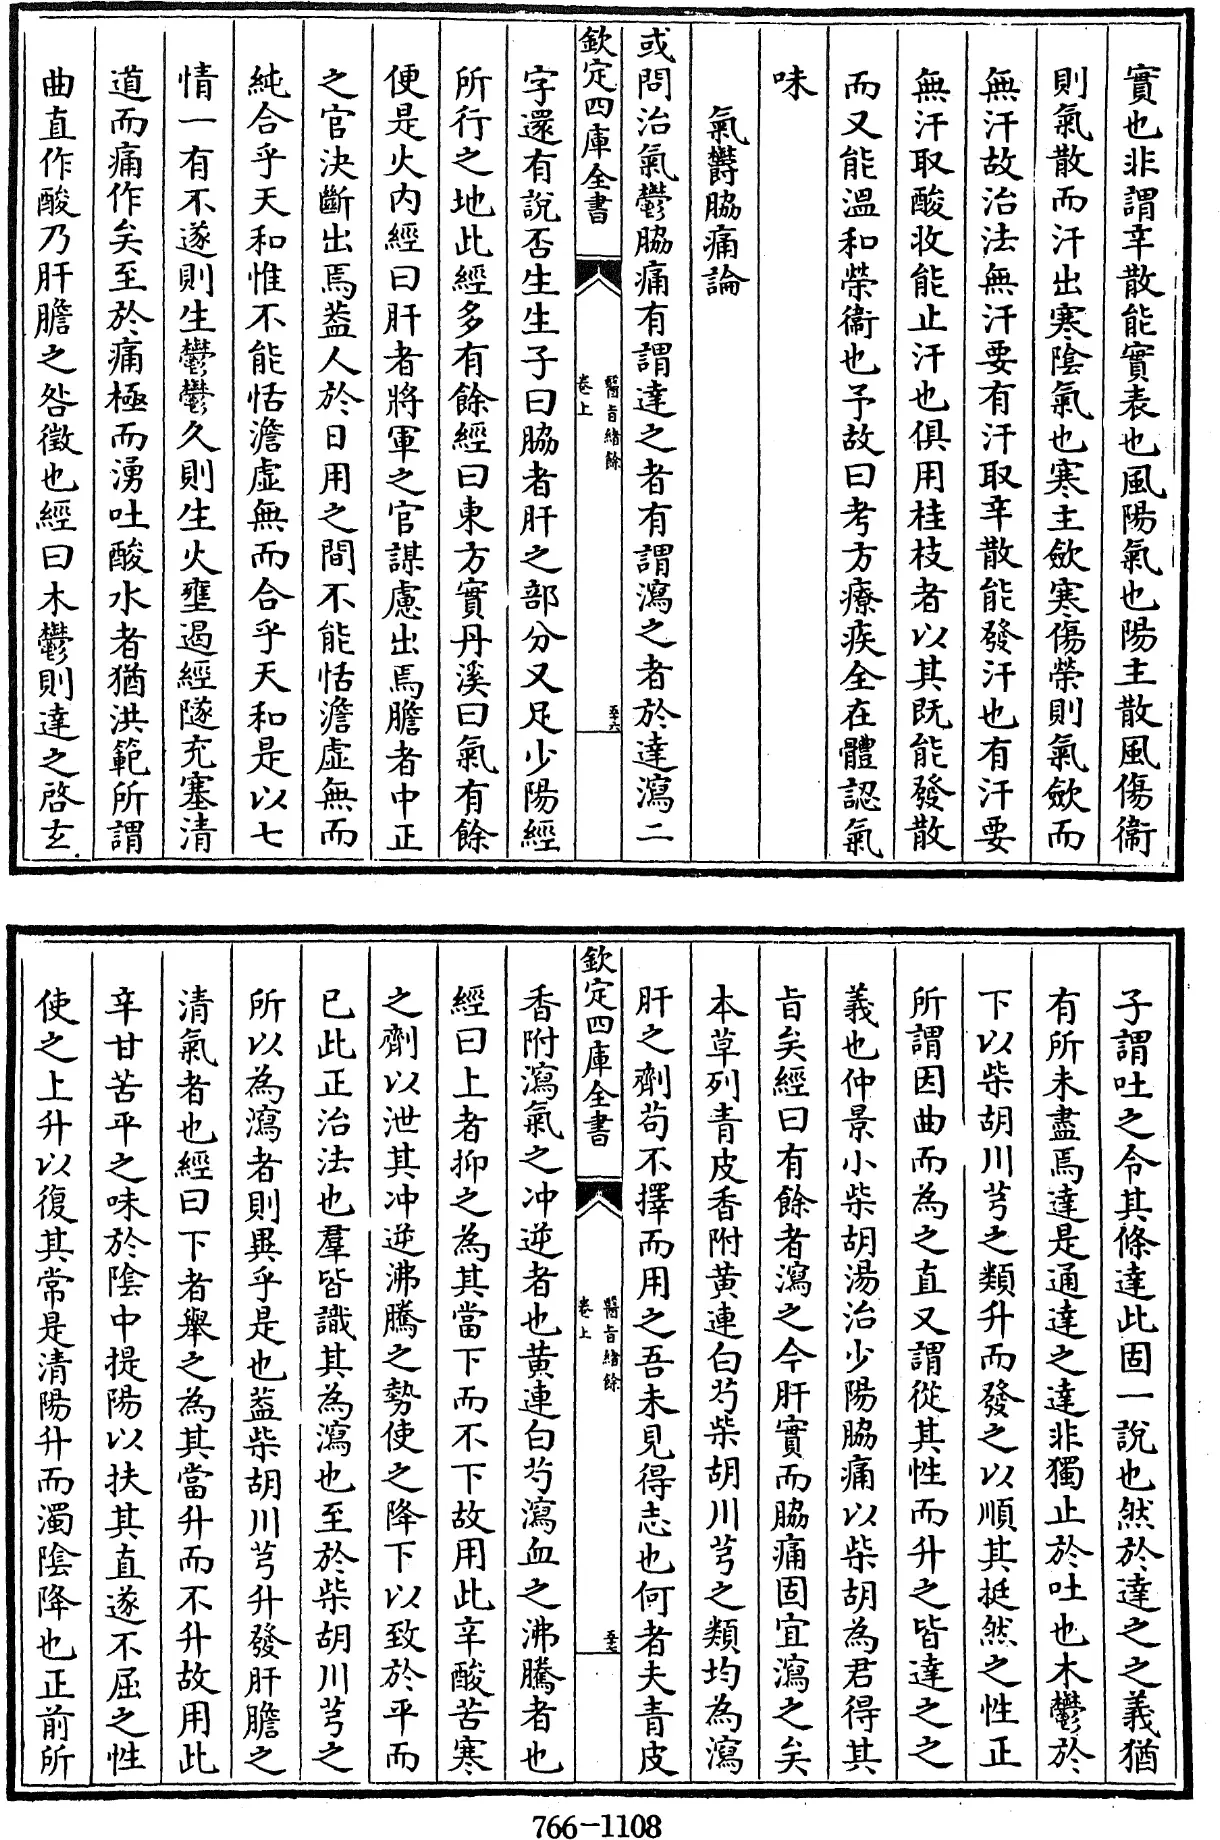 實也非謂辛散能實表也風陽氣也陽主散風傷衛
則氣散而汗出寒陰氣也寒主歛寒傷榮則氣歛而
無汗故治法無汗要有汗取辛散能發汗也有汗要
無汗取酸收能止汗也俱用桂枝者以其既能發散
而又能溫和榮衛也予故曰考方療疾全在體認氣
味
氣欝脇痛論
或問治氣鬱脇痛有謂達之者有謂瀉之者於達瀉二
欽定四庫全書
醫旨緒餘
卷上
五六
字還有說否生生子曰脇者肝之部分又足少陽經
所行之地此經多有餘經曰東方實丹溪曰氣有餘
便是火內經曰肝者將軍之官謀慮出焉膽者中正
之官決斷出焉葢人於日用之間不能恬澹虛無而
純合乎天和惟不能恬澹虛無而合乎天和是以七
情一有不遂則生鬱鬱久則生火壅遏經隧充塞清
道而痛作矣至於痛極而湧吐酸水者猶洪範所謂
曲直作酸乃肝膽之咎徵也經曰木鬱則達之啓玄
子謂吐之令其條達此固一說也然於達之之義猶
有所未盡焉達是通達之達非獨止於吐也木鬱於
下以柴胡川芎之類升而發之以順其挺然之性正
所謂因曲而為之直又謂從其性而升之皆達之之
義也仲景小柴胡湯治少陽脇痛以柴胡為君得其
旨矣經曰有餘者瀉之今肝實而脇痛固宜瀉之矣
本草列青皮香附黄連白芍柴胡川芎之類均為瀉
肝之劑茍不擇而用之吾未見得志也何者夫青皮
欽定四庫全書
醫旨緒餘
卷上
五七
香附瀉氣之冲逆者也黄連白芍瀉血之沸騰者也
經曰上者抑之為其當下而不下故用此辛酸苦寒
之劑以泄其冲逆沸騰之勢使之降下以致於平而
已此正治法也羣皆識其為瀉也至於柴胡川芎之
所以為瀉者則異乎是也葢柴胡川芎升發肝膽之
清氣者也經曰下者舉之為其當升而不升故用此
辛甘苦平之味於陰中提陽以扶其直遂不屈之性
使之上升以復其常是清陽升而濁陰降也正前所
766-1108